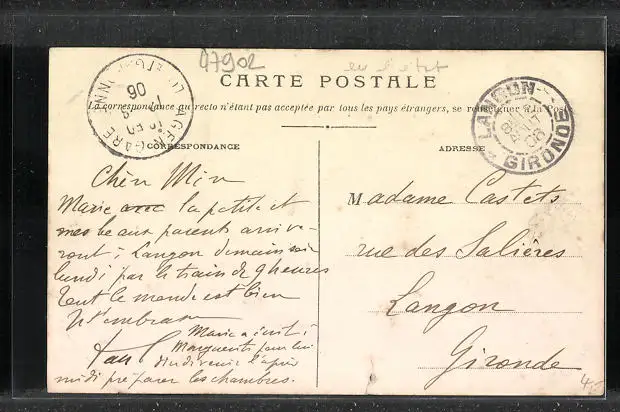 47902
en l'état
CARTE POSTALE
La correspondance au recto n'étant pas acceptée par tous les pays étrangers, se renseigner à la Poste
CORRESPONDANCE
ADRESSE
AGEN GARE
06
LANGON
GIRONDE
Chère
Marie avec la petite et
mes beaux parents arrive-
ront à Langon demain soir
lundi par le train de 9 heures
Tout le monde est bien
Marie a écrit à
Marguerite pour lui
dire de venir l'après
midi préparer les chambres.
Madame Castets
rue des Salières
Langon
Gironde